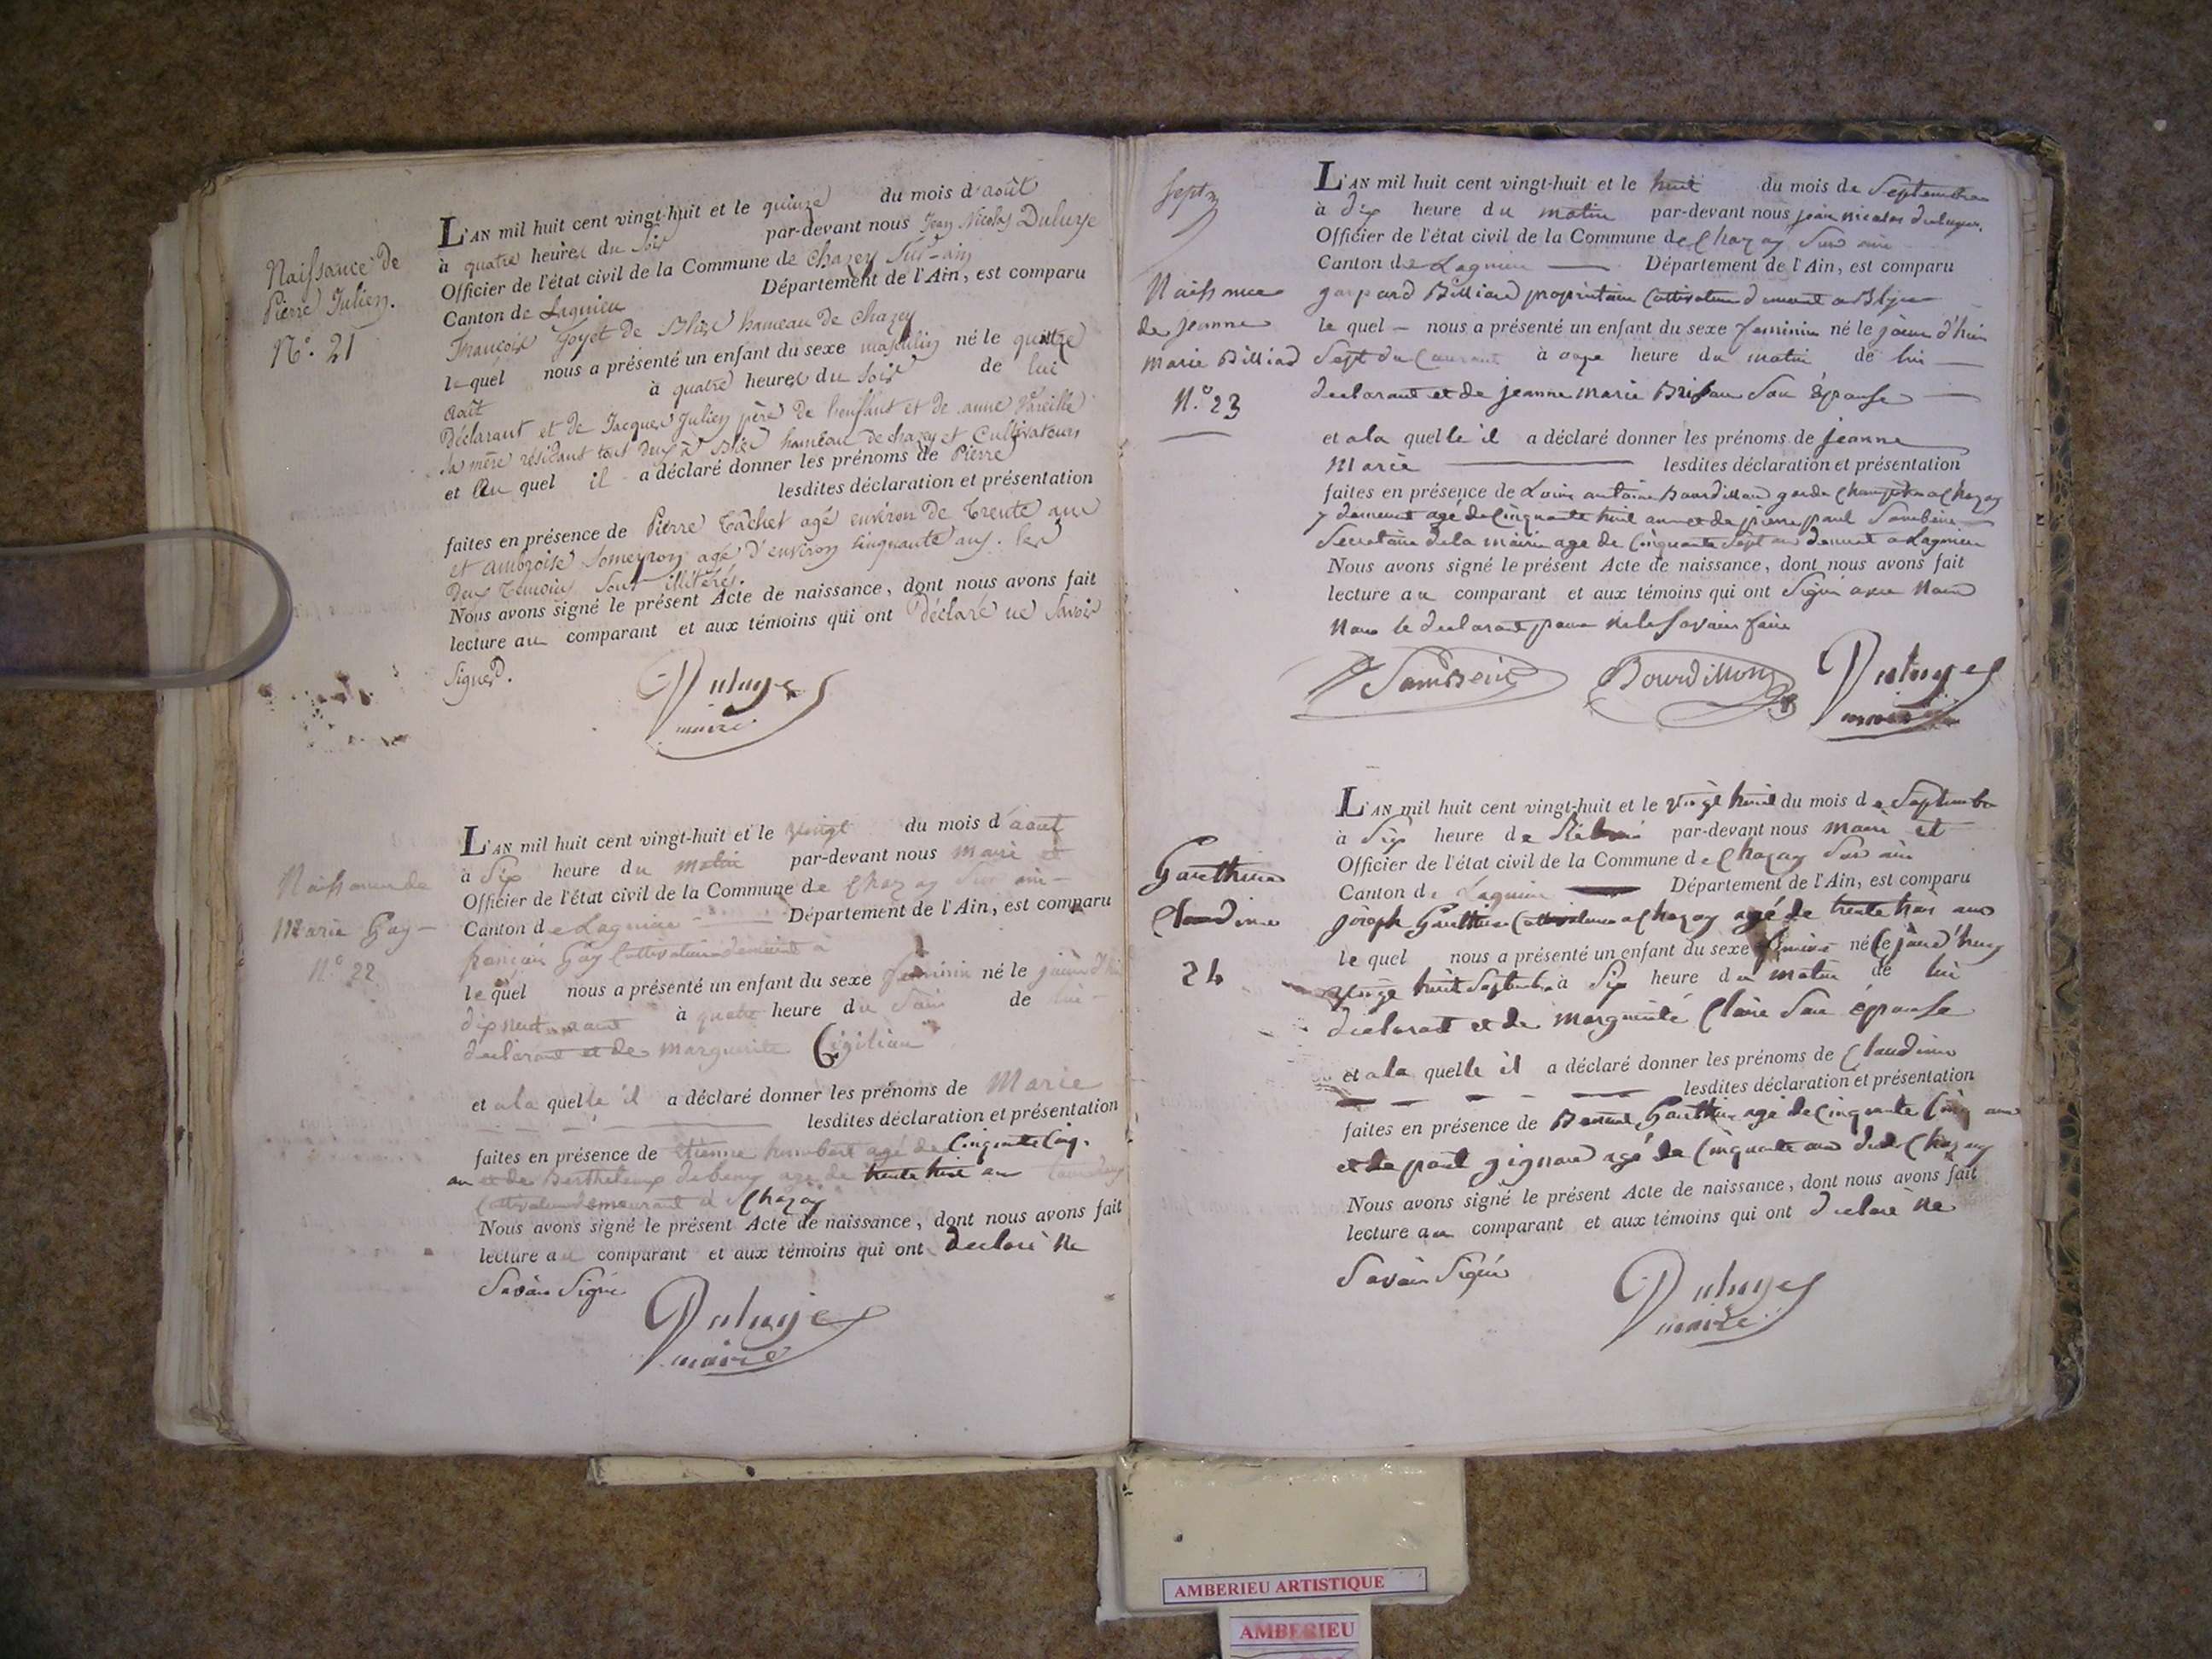 Naissance de
Pierre Julien.
N.° 21
L'AN mil huit cent vingt-huit et le quinze du mois d'août
à quatre heures du soir par-devant nous Jean Nicolas Duluye
Officier de l'état civil de la Commune de Chazey Sur-ain
Canton de Lagnieu Département de l'Ain, est comparu
François Joyet de Blie hameau de Chazey
lequel nous a présenté un enfant du sexe masculin né le quatre
août à quatre heures du soir de lui
Déclarant et de Jacques Julien père de l'enfant et de anne
sa mère résidant tout deux à Blie hameau de chazey et Cultivateurs
et au quel il a déclaré donner les prénoms de Pierre
lesdites déclaration et présentation
faites en présence de Pierre Tachet agé environ de Trente ans
et ambroise Someyron agé d'environ cinquante ans. les
Deux Témoins sont illétérés.
Nous avons signé le présent Acte de naissance, dont nous avons fait
lecture au comparant et aux témoins qui ont Déclaré ne Savoir
Signer.
Duluye
maire
Naissance de
Marie Gay
N.° 22
L'AN mil huit cent vingt-huit et le vingt du mois d'aout
à Six heure du matin par-devant nous maire et
Officier de l'état civil de la Commune de Chazay Sur ain
Canton de Lagnieu Département de l'Ain, est comparu
françois Gay Cultivateur demeurant à
le quel nous a présenté un enfant du sexe feminin né le
dix neuf aout à quatre heure du Soir de lui
declarant et de marguerite
et a la quelle il a déclaré donner les prénoms de Marie
lesdites déclaration et présentation
faites en présence de etienne humbert agé de Cinquante Cinq
an et de Berthelemy agé de trente huit an
Cultivateur demeurant a Chazay
Nous avons signé le présent Acte de naissance, dont nous avons fait
lecture au comparant et aux témoins qui ont declaré ne
Savoir Signé
Duluye
maire
Sept
Naissance
de jeanne
marie Billiad
N.° 23
L'AN mil huit cent vingt-huit et le huit du mois de Septembre
à dix heure du matin par-devant nous jean nicolas duluye
Officier de l'état civil de la Commune de Chazay Sur ain
Canton de Lagnieu Département de l'Ain, est comparu
gaspard Billiard propriétaire Cultivateur demeurant a Blye
le quel nous a présenté un enfant du sexe feminin né le jour d'hui
Sept du Courant à onze heure du matin de lui
declarant et de jeanne marie Son Epouse
et a la quelle il a déclaré donner les prénoms de jeanne
Marie lesdites déclaration et présentation
faites en présence de Louis antoine Bourdillon garde Champetre a Chazay
y demeurant agé de Cinquante huit ans et de pierre paul
Secretaire de la mairie age de Cinquante Sept ans demeurant a Lagnieu
Nous avons signé le présent Acte de naissance, dont nous avons fait
lecture au comparant et aux témoins qui ont Signé avec Nous
Non le declarant pour ne le Savoir faire
Bourdillon
Duluye
maire
Gauthier
Claudine
24
L'AN mil huit cent vingt-huit et le vingt huit du mois de Septembre
à Six heure de par-devant nous maire et
Officier de l'état civil de la Commune de Chazay Sur ain
Canton de Lagnieu Département de l'Ain, est comparu
joseph Gauthier Cultivateur a Chazay agé de trente trois ans
le quel nous a présenté un enfant du sexe né le jour d'huy
vingt huit Septembre à Six heure du matin de lui
declarant et de marguerite Claire Son épouse
et a la quelle il a déclaré donner les prénoms de Claudine
lesdites déclaration et présentation
faites en présence de Benoit Gauthier agé de Cinquante Cinq ans
et de paul agé de Cinquante ans Chazay
Nous avons signé le présent Acte de naissance, dont nous avons fait
lecture au comparant et aux témoins qui ont declaré ne
Savoir Signé
Duluye
maire
AMBERIEU ARTISTIQUE
AMBERIEU